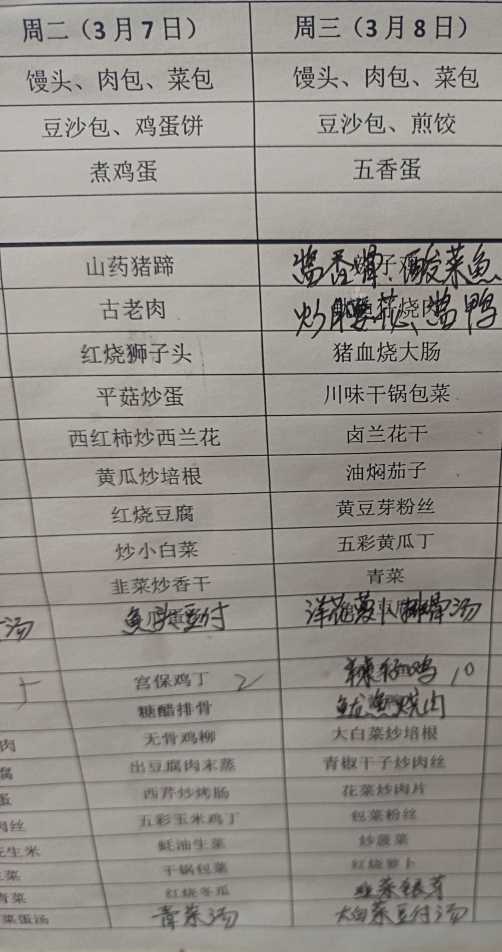 周二（3月7日） 周三（3月8日）
馒头、肉包、菜包 馒头、肉包、菜包
豆沙包、鸡蛋饼 豆沙包、煎饺
煮鸡蛋 五香蛋
山药猪蹄 酸菜鱼
古老肉 炒腰花、酱鸭
红烧狮子头 猪血烧大肠
平菇炒蛋 川味干锅包菜
西红柿炒西兰花 卤兰花干
黄瓜炒培根 油焖茄子
红烧豆腐 黄豆芽粉丝
炒小白菜 五彩黄瓜丁
韭菜炒香干 青菜
汤 鱼头豆付 洋花萝卜排骨汤
宫保鸡丁 2 辣子鸡 10
糖醋排骨 鱿鱼烧肉
肉 无骨鸡柳 大白菜炒培根
腐 出豆腐肉末蒸 青椒干子炒肉丝
蛋 西芹炒烤肠 花菜炒肉片
肉丝 五彩玉米鸡丁 包菜粉丝
花生米 蚝油生菜 炒菠菜
菜 干锅包菜 红烧萝卜
青菜 红烧冬瓜 韭菜银芽
菜蛋汤 青菜汤 大白菜豆付汤